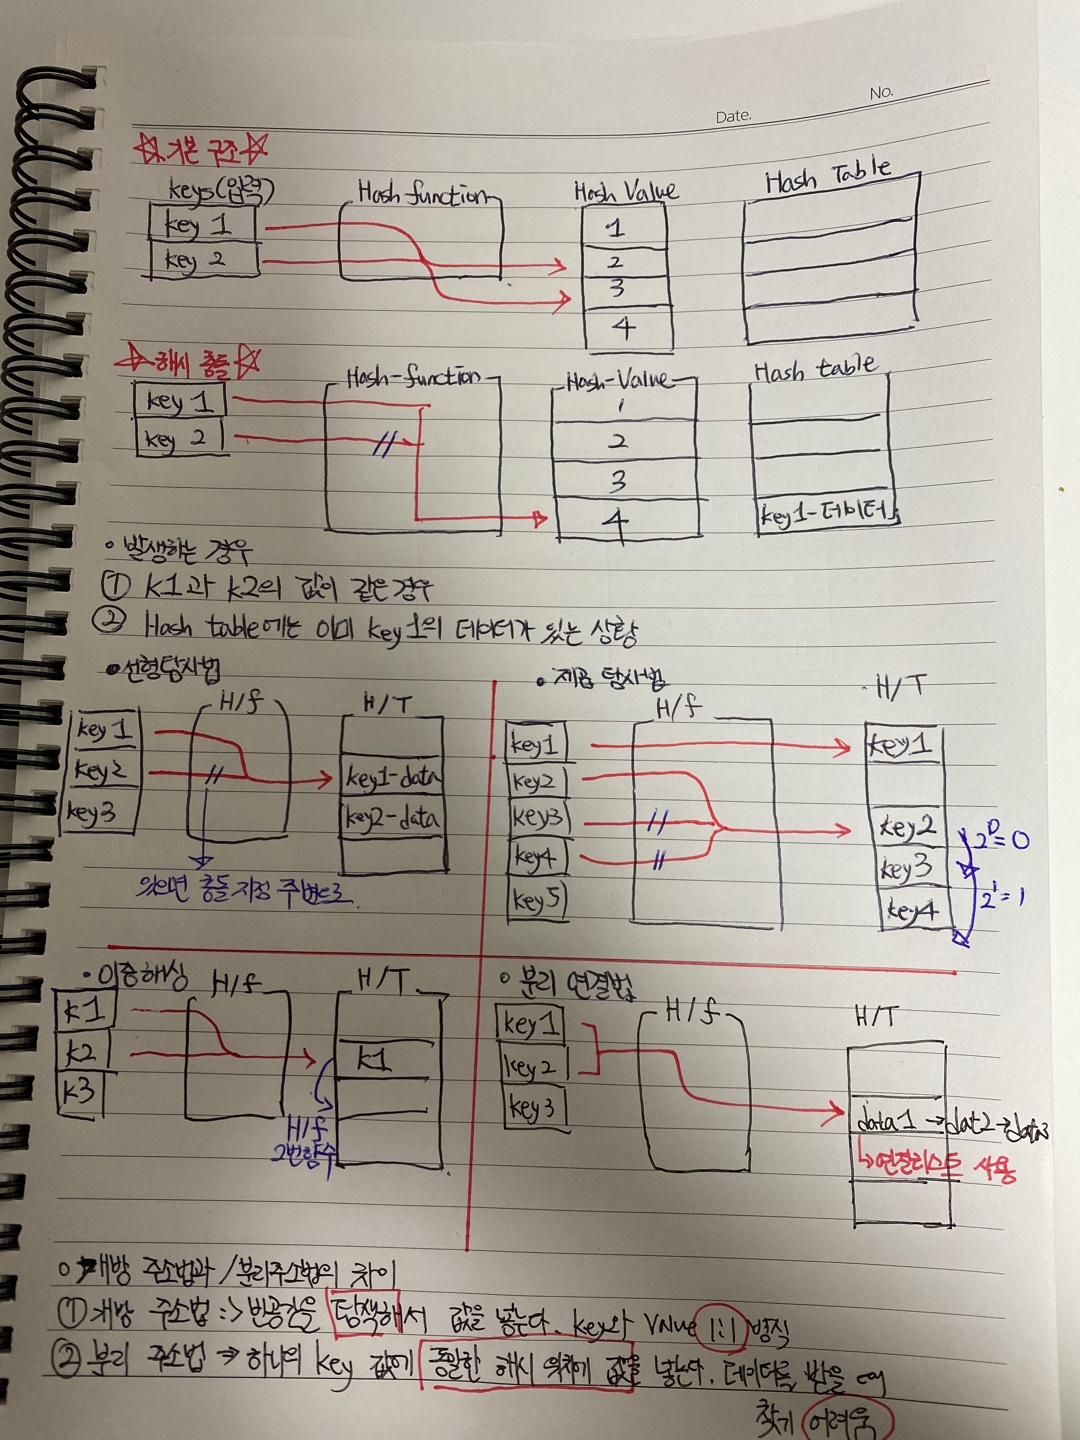 No.
Date.
☆기본 구조☆
keys(입력) Hash function Hash Value Hash Table
key 1
key 2
1
2
3
4
☆해시 충돌☆
Hash-function Hash-Value Hash table
key 1
key 2
1
2
3
4
key1-데이터
◦ 발생하는 경우
① k1과 k2의 값이 같은 경우
② Hash table에는 이미 key1의 데이터가 있는 상황
• 선형탐사법
H/f H/T
key1
key2
key3
key1-data
key2-data
있으면 충돌지점 주변으로
◦ 제곱 탐사법
H/f H/T
key1
key2
key3
key4
key5
key1
key2
key3
key4
2⁰=0
2¹=1
• 이중해싱
H/f H/T
k1
k2
k3
k1
H/f
2번함수
◦ 분리 연결법
H/f H/T
key1
key2
key3
data1 → dat2 → data3
↳연결리스트 사용
◦ 개방 주소법과 /분리주소법의 차이
① 개방 주소법 :> 빈공간을 탐색해서 값을 넣는다. key와 value 1:1 방식
② 분리 주소법 ⇒ 하나의 key 값에 동일한 해시 위치에 값을 넣는다. 데이터를 받을
찾기 어려움